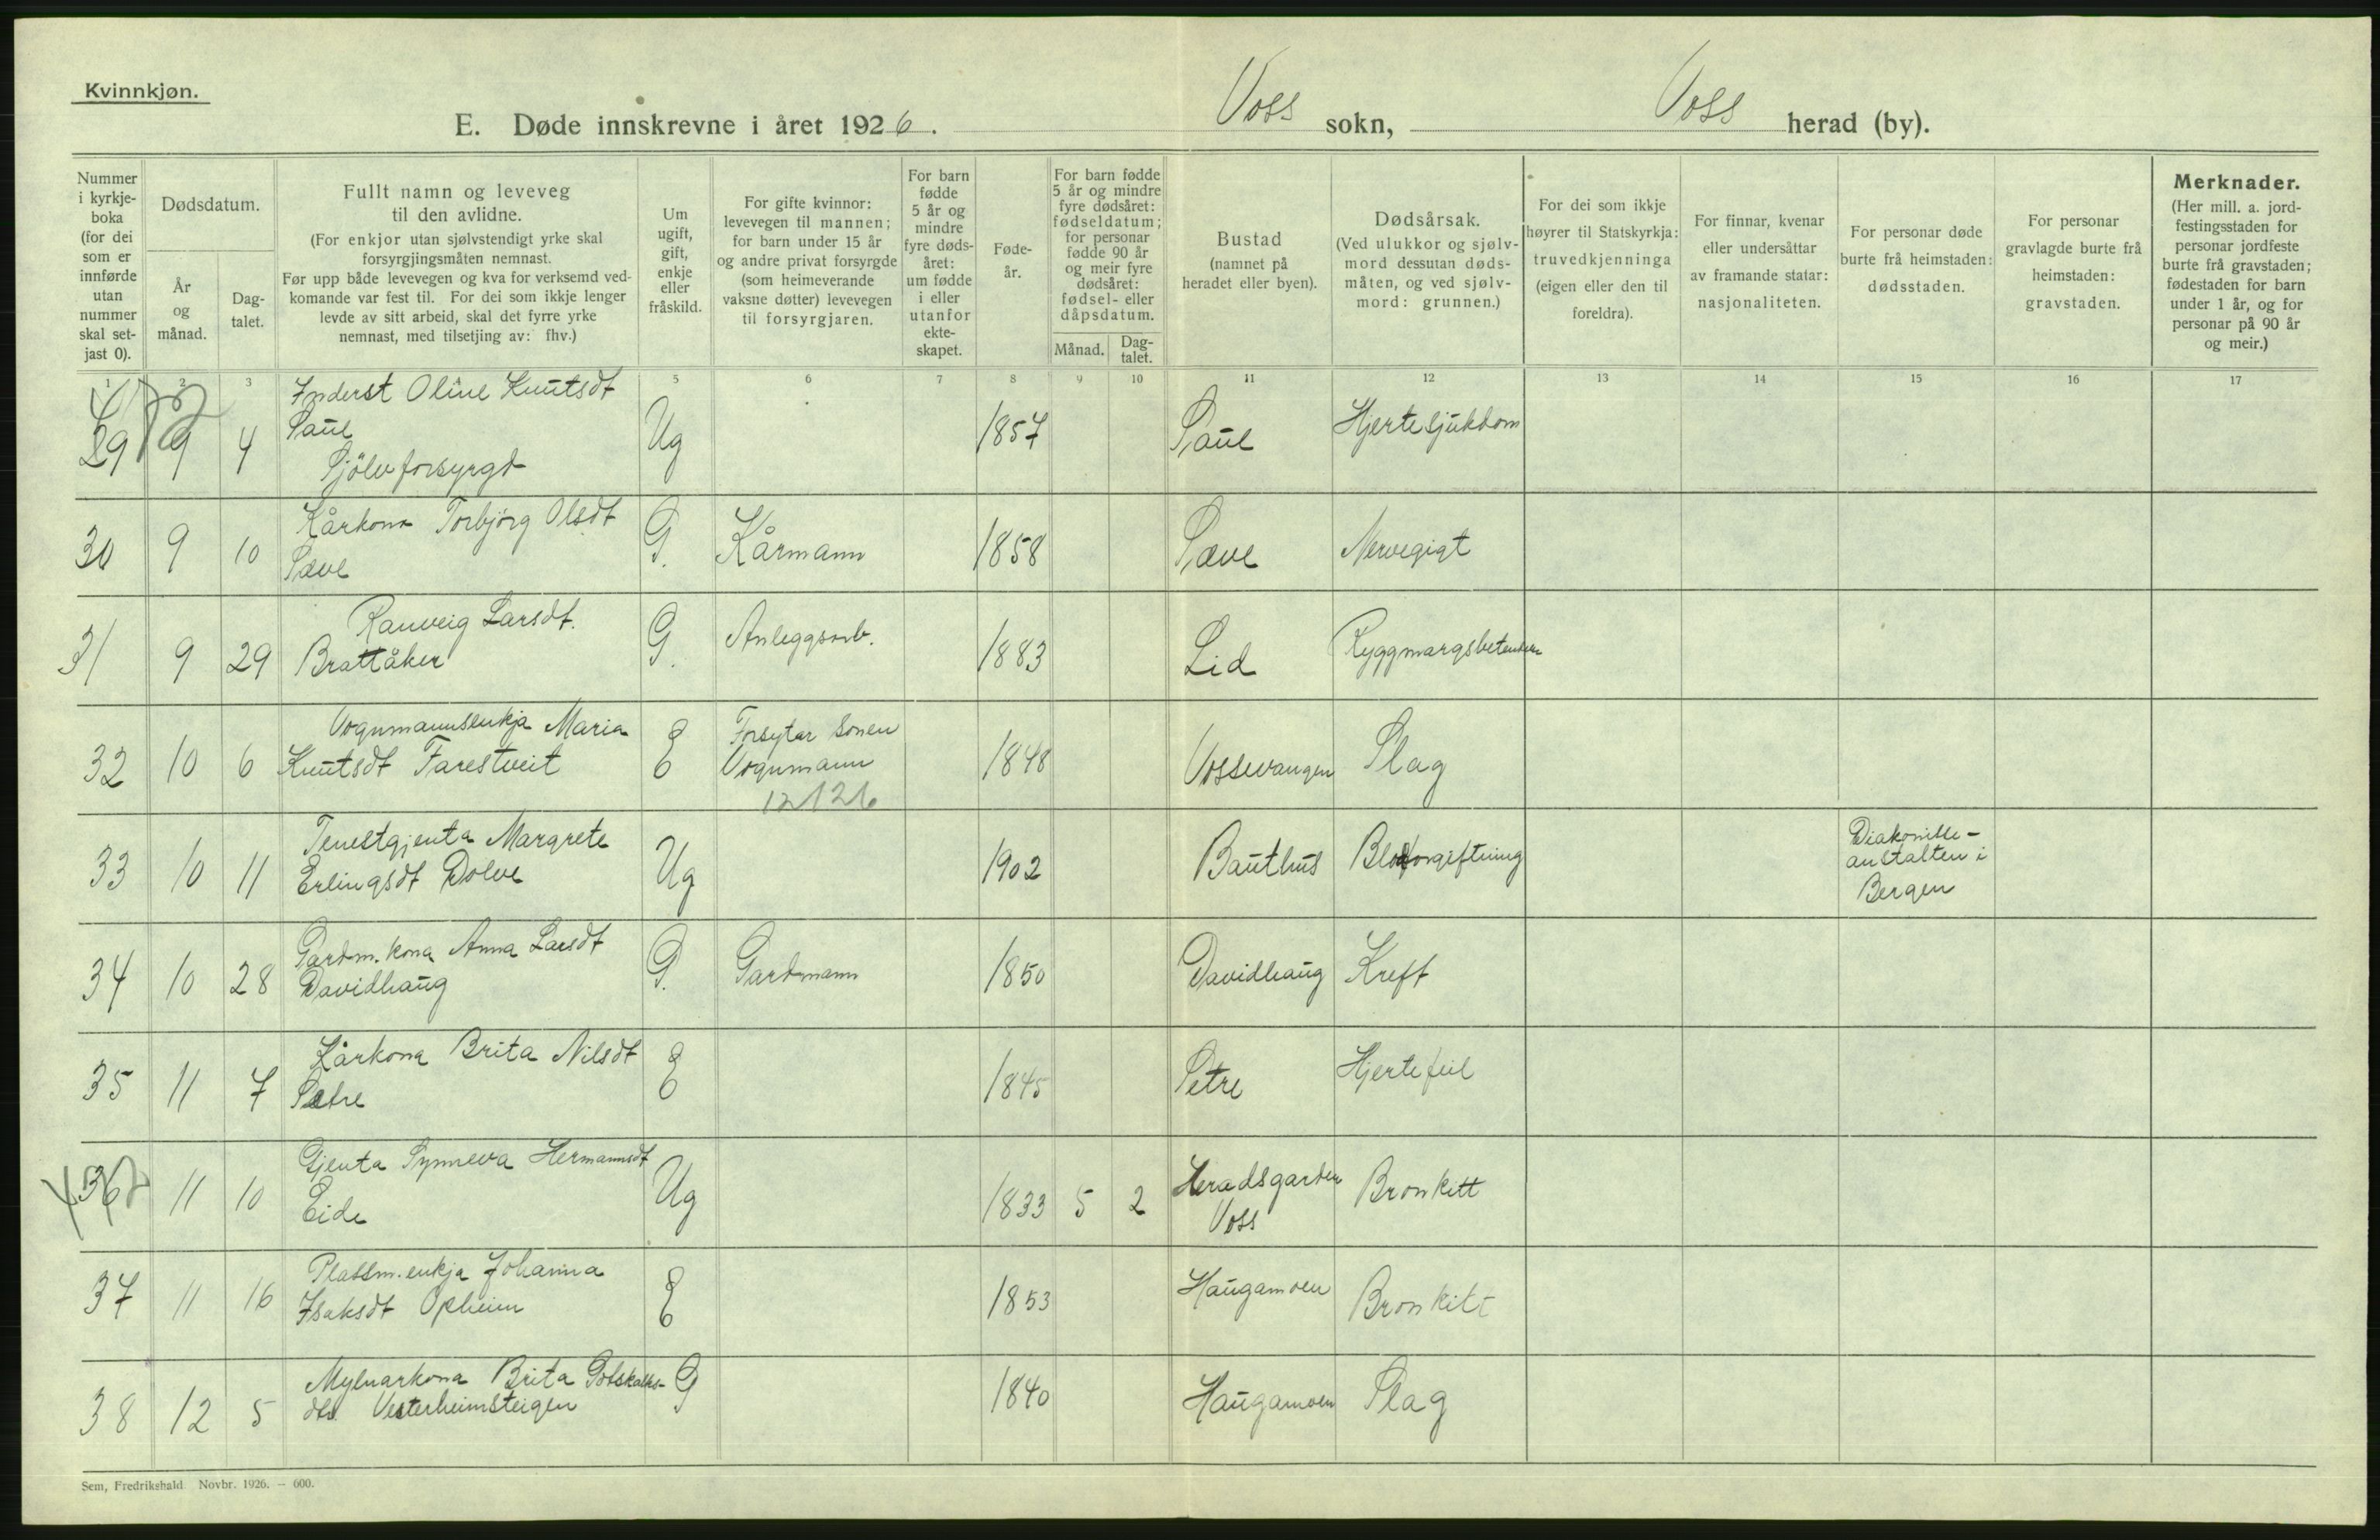 Kvinnkjøn.
E. Døde innskrevne i året 1926. Voss sokn, Voss herad (by).
Nummer i kyrkje-boka (for dei som er innførde utan nummer skal set-jast 0).
Dødsdatum.
År og månad.
Dag-talet.
Fullt namn og leveveg til den avlidne.
(For enkjor utan sjølvstendigt yrke skal forsyrgjingsmåten nemnast.
Før upp både levevegen og kva for verksemd ved-komande var fest til. For dei som ikkje lenger levde av sitt arbeid, skal det fyrre yrke nemnast, med tilsetjing av: fhv.)
Um ugift, gift, enkje eller fråskild.
For gifte kvinnor: levevegen til mannen; for barn under 15 år og andre privat forsyrgde (som heimeverande vaksne døtter) levevegen til forsyrgjaren.
For barn fødde 5 år og mindre fyre døds-året: um fødde i eller utanfor ekte-skapet.
Føde-år.
For barn fødde 5 år og mindre fyre dødsåret: fødseldatum; for personar fødde 90 år og meir fyre dødsåret: fødsel- eller dåpsdatum.
Månad.
Dag-talet.
Bustad (namnet på heradet eller byen).
Dødsårsak. (Ved ulukkor og sjølv-mord dessutan døds-måten, og ved sjølv-mord: grunnen.)
For dei som ikkje høyrer til Statskyrkja: truvedkjenninga (eigen eller den til foreldra).
For finnar, kvenar eller undersåttar av framande statar: nasjonaliteten.
For personar døde burte frå heimstaden: dødsstaden.
For personar gravlagde burte frå heimstaden: gravstaden.
Merknader. (Her mill. a. jord-festingsstaden for personar jordfeste burte frå gravstaden; fødestaden for barn under 1 år, og for personar på 90 år og meir.)
1 2 3 5 6 7 8 9 10 11 12 13 14 15 16 17
29 9 4 Inderst Oline Knutsdt Saue Sjölvforsyrgt Ug 1857 Saue Hjertesjukdom
30 9 10 Kårkona Torbjörg Olsdt Sæve G. Kårmann 1858 Sæve Nervegigt
31 9 29 Ranveig Larsdt. Brattåker G. Anleggsarb. 1883 Lid
32 10 6 Vognmannsenkja Maria Knutsdt Farestveit E Forsytar sonen Vognmann 1848 Vossevangen Slag
33 10 11 Tenestgjenta Margrete Erlingsdt Dolve Ug 1902 Bauthus Blodforgiftning Diakonisse-anstalten i Bergen
34 10 28 Gardm. kona Anna Larsdt Davidhaug G. Gardmann 1850 Davidhaug Kreft
35 11 7 Kårkona Brita Nilsdt Sætre E 1845 Setre Hjertefeil
36 11 10 Gjenta Synneva Hermannsdt Eide Ug 1833 5 2 Heradsgarden Voss Bronkitt
37 11 16 Plassm.enkja Johanna Isaksdt Opheim E 1853 Haugamoen Bronkitt
38 12 5 Mylnarkona Brita Gotskalks-dt. Vesterheimsteigen G 1840 Haugamoen Slag
Sem, Fredrikshald Novbr. 1926. — 600.